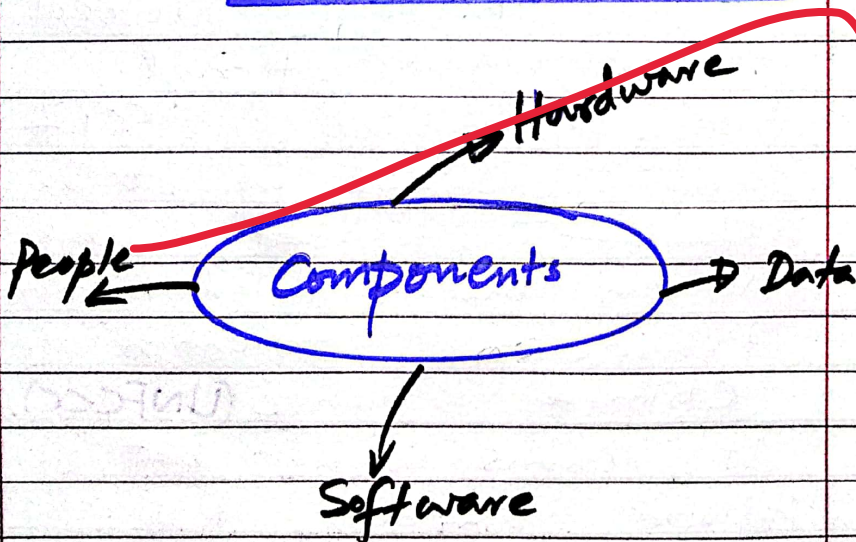 Hardware
People
Components
Data
Software